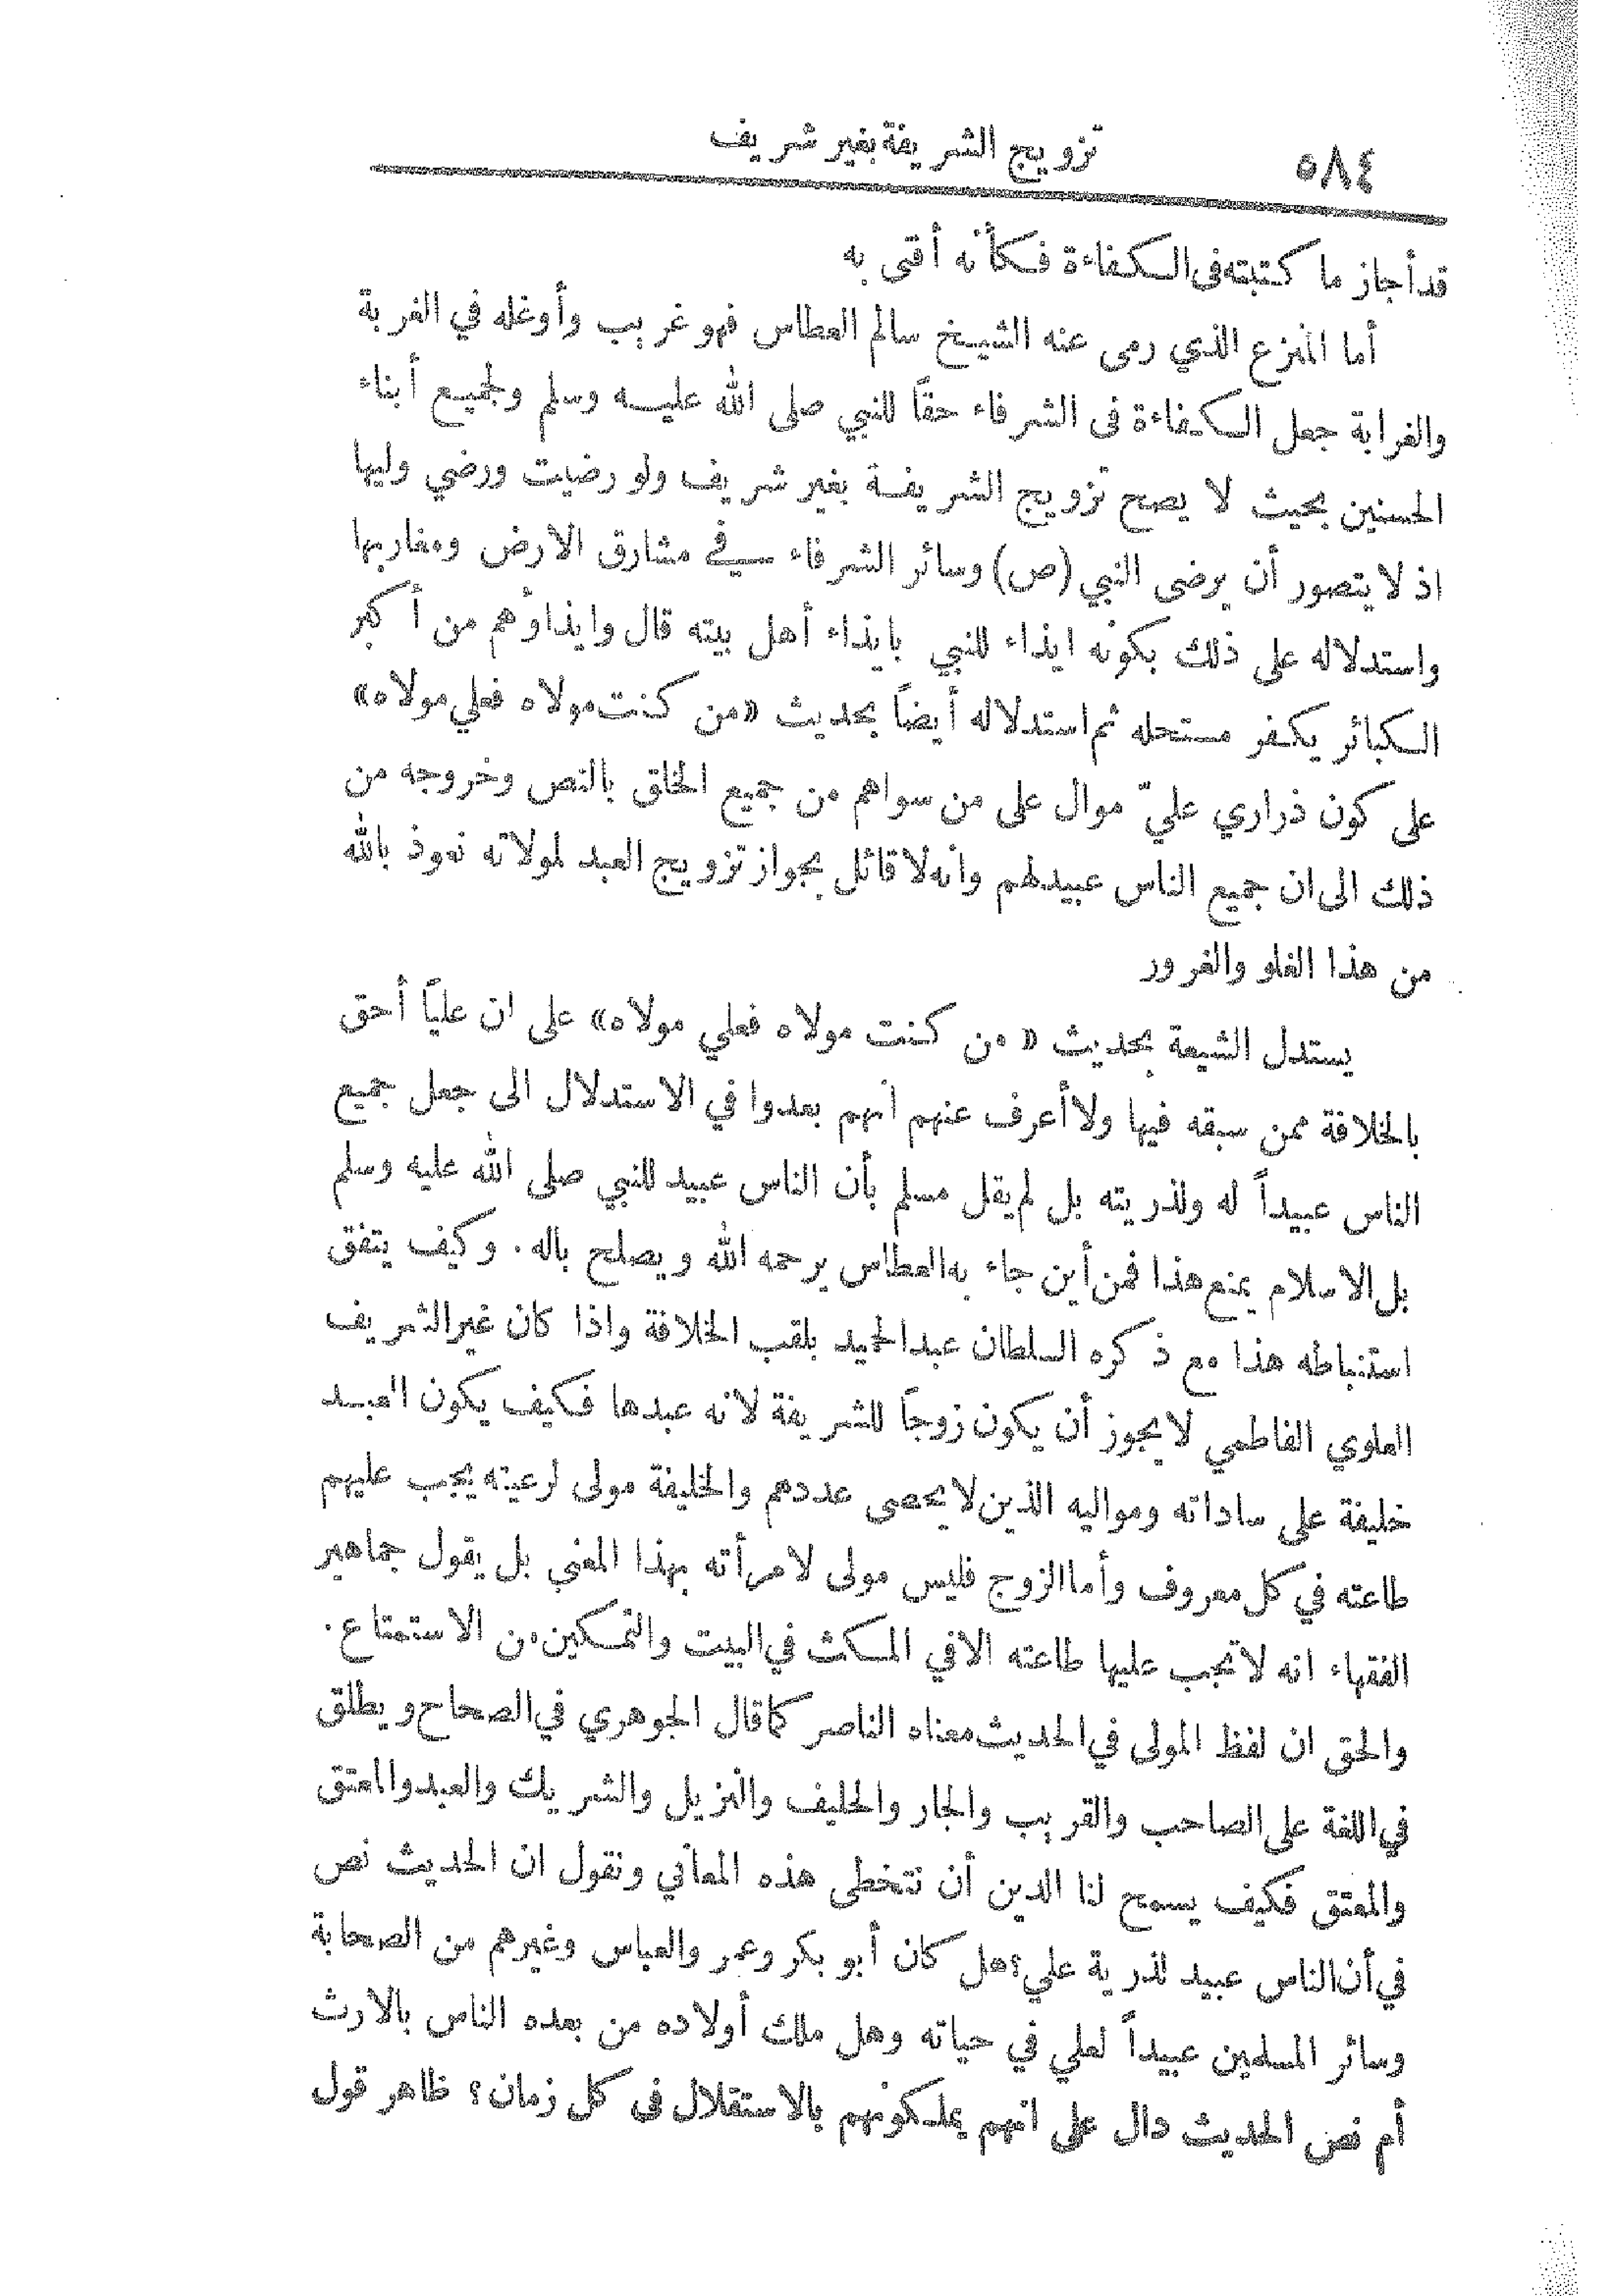 ٥٨٤
تزويج الشريفة بغير شريف
قد أجاز ما كتبته في الكفاءة فكأنه أفتى به
أما المنزع الذي رمى عنه الشيخ سالم العطاس فهو غريب وأوغله في الغربة
والغرابة جعل الكفاءة في الشرفاء حقاً للنبي صلى الله عليه وسلم ولجميع أبناء
الحسنين بحيث لا يصح تزويج الشريفة بغير شريف ولو رضيت ورضي وليها
اذ لا يتصور أن يرضى النبي (ص) وسائر الشرفاء في مشارق الارض ومغاربها
واستدلاله على ذلك بكونه ايذاء للنبي بايذاء أهل بيته قال وايذاؤهم من أكبر
الكبائر يكفر مستحله ثم استدلاله أيضاً بحديث «من كنت مولاه فعلي مولاه»
على كون ذراري عليّ موال على من سواهم من جميع الخلق بالنص وخروجه من
ذلك الى ان جميع الناس عبيد لهم وانه لا قائل بجواز تزويج العبد لمولاته نعوذ بالله
من هذا الغلو والغرور
يستدل الشيعة بحديث « من كنت مولاه فعلي مولاه» على ان علياً أحق
بالخلافة ممن سبقه فيها ولا أعرف عنهم انهم بعدوا في الاستدلال الى جعل جميع
الناس عبيداً له ولذريته بل لم يقل مسلم بأن الناس عبيد للنبي صلى الله عليه وسلم
بل الاسلام يمنع هذا فمن أين جاء به العطاس يرحمه الله ويصلح باله . وكيف يتفق
استنباطه هذا مع ذكره السلطان عبد الحميد بلقب الخلافة واذا كان غير الشريف
العلوي الفاطمي لا يجوز أن يكون زوجاً للشريفة لانه عبدها فكيف يكون العبد
خليفة على ساداته ومواليه الذين لا يحصى عددهم والخليفة مولى لرعيته يجب عليهم
طاعته في كل معروف وأما الزوج فليس مولى لامرأته بهذا المعنى بل يقول جماهير
الفقهاء انه لا تجب عليها طاعته الا في المكث في البيت والتمكين من الاستمتاع .
والحق ان لفظ المولى في الحديث معناه الناصر كما قال الجوهري في الصحاح ويطلق
في اللغة على الصاحب والقريب والجار والحليف والنزيل والشريك والعبد والمعتق
والمعتق فكيف يسمح لنا الدين أن نتخطى هذه المعاني ونقول ان الحديث نص
في أن الناس عبيد لذرية علي؟ هل كان أبو بكر وعمر والعباس وغيرهم من الصحابة
وسائر المسلمين عبيداً لعلي في حياته وهل ملك أولاده من بعده الناس بالارث
أم نص الحديث دال على انهم يملكونهم بالاستقلال في كل زمان؟ ظاهر قول